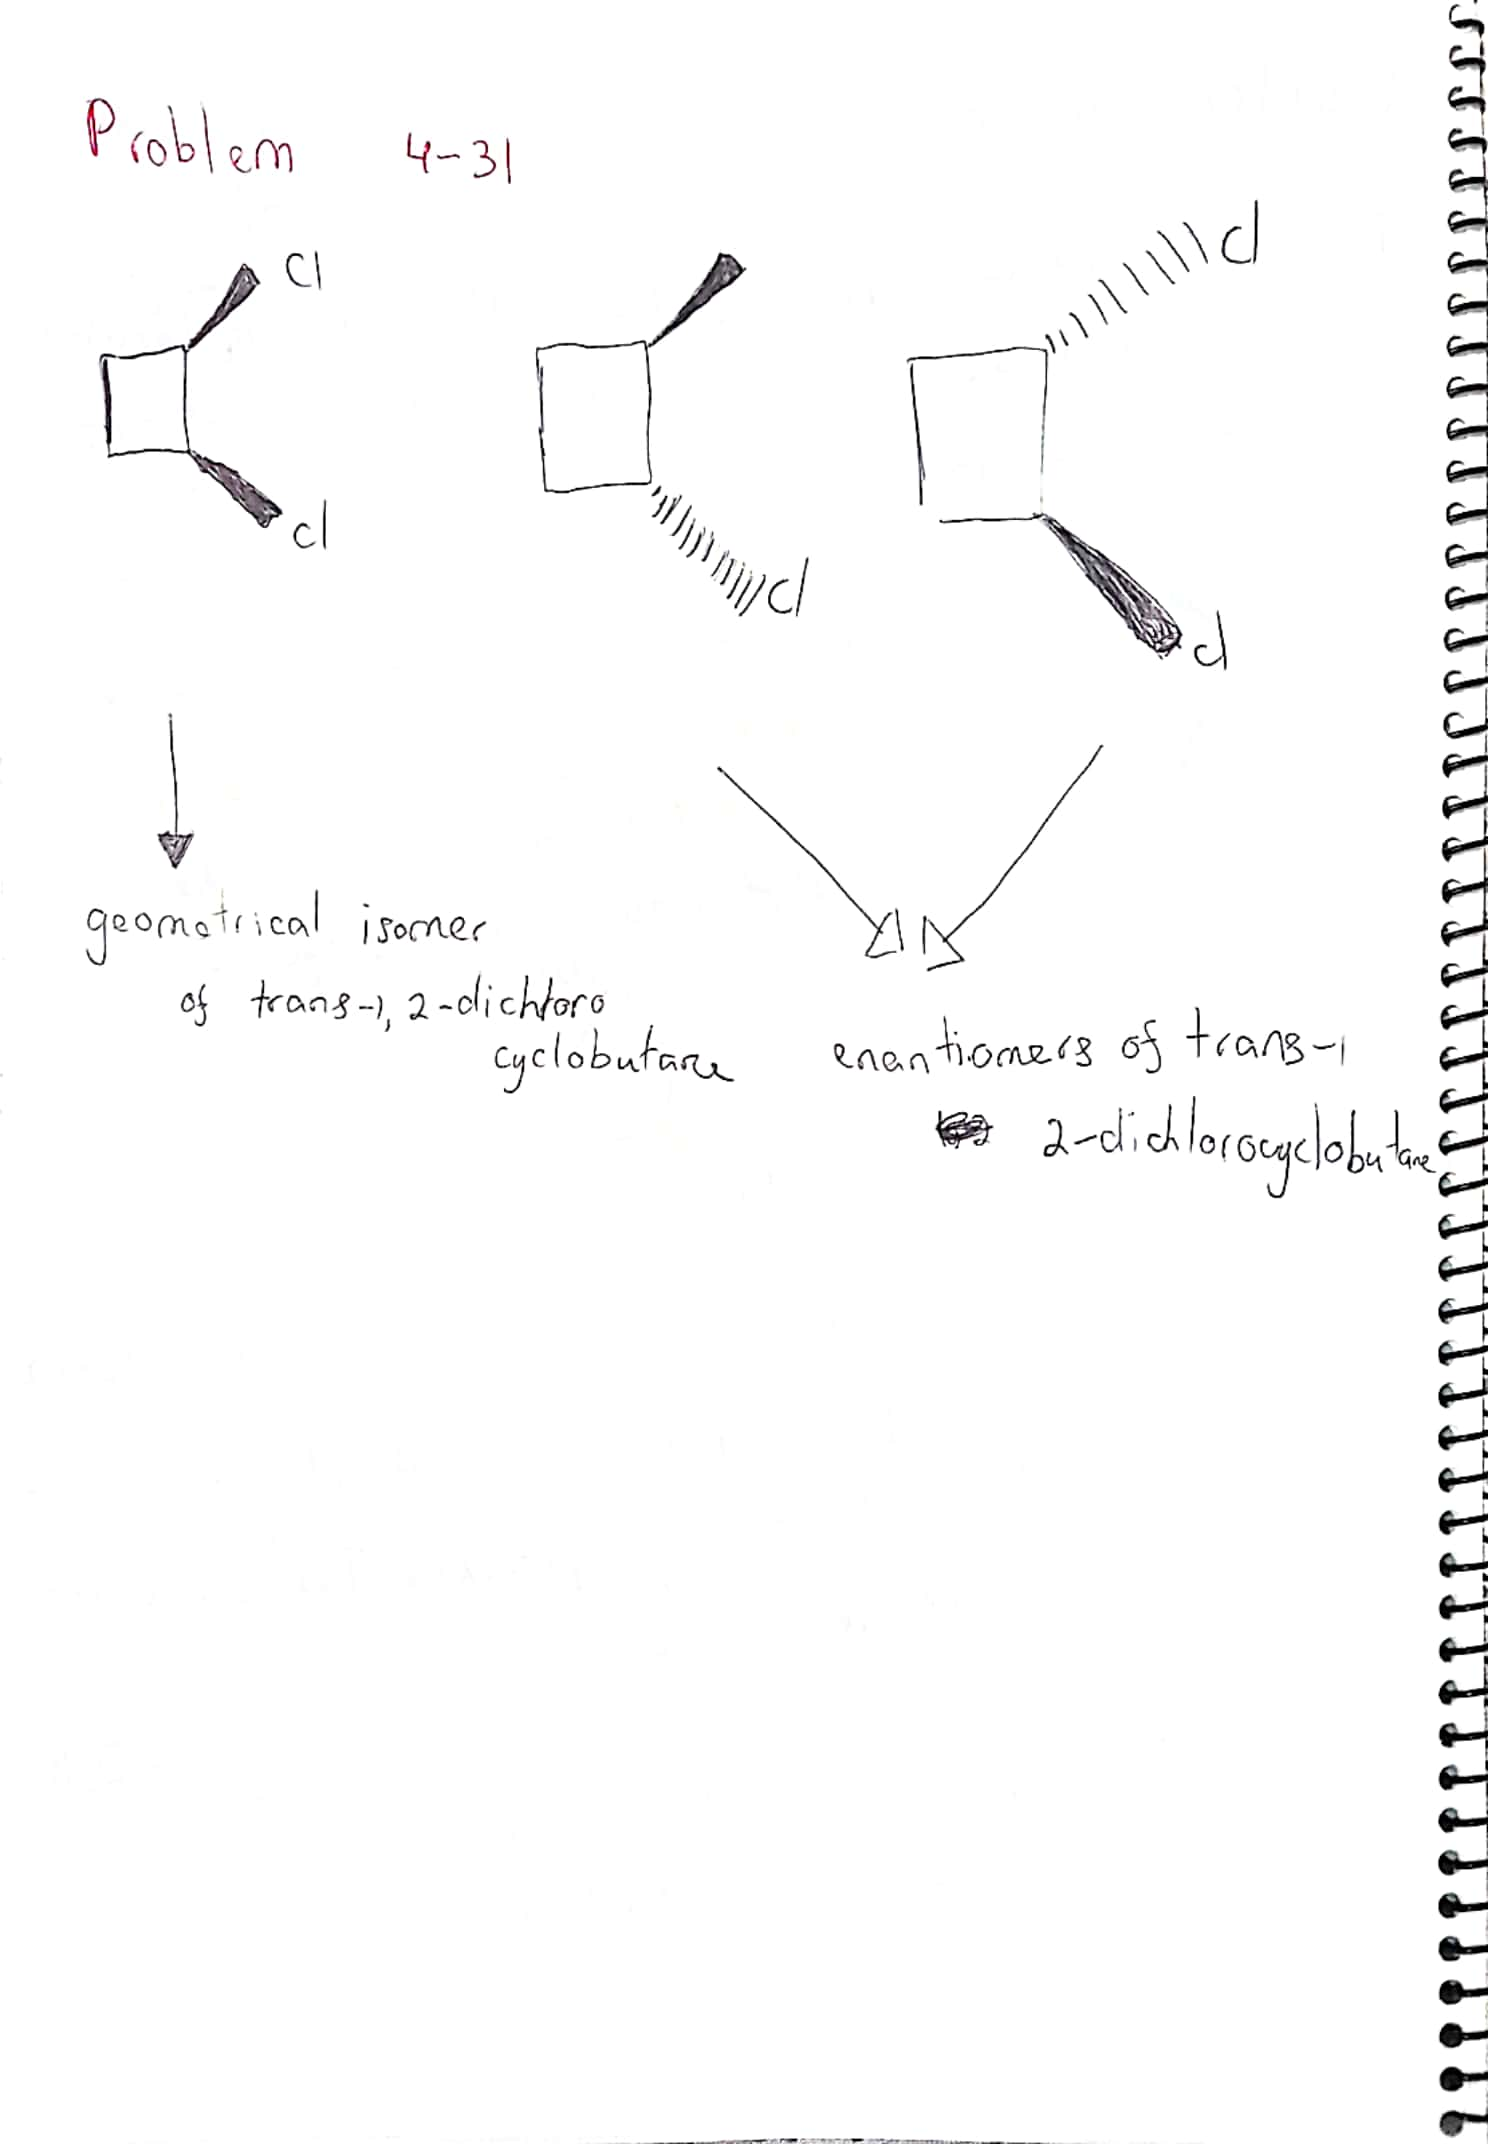 Problem 4-31
Cl
Cl
Cl
Cl
Cl
geometrical isomer
of trans-1, 2-dichloro
cyclobutane
enantiomers of trans-1
2-dichlorocyclobutane